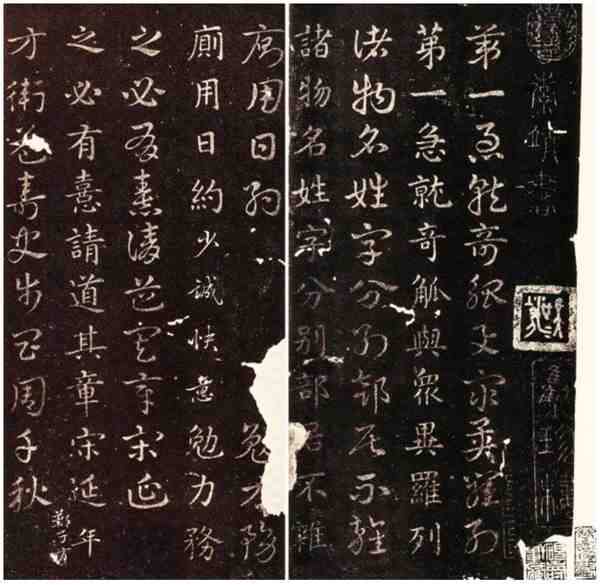 第一急就奇觚與眾異羅列
第一急就奇觚與眾異羅列
諸物名姓字分別部居不雜
諸物名姓字分別部居不雜
廁用日約勉力務
廁用日約少誠快意勉力務
之必有憙請道其章宋延
之必有憙請道其章宋延年鄭子方
方衛益壽史步昌周千秋